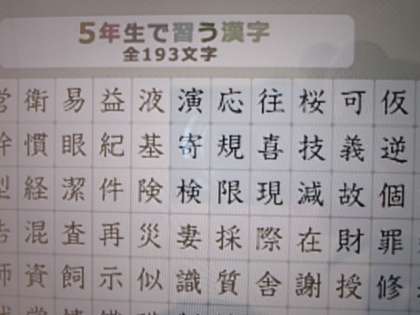 5年生で習う漢字
全193文字
営 衛 易 益 液 演 応 往 桜 可 仮
幹 慣 眼 紀 基 寄 規 喜 技 義 逆
型 経 潔 件 険 検 限 現 減 故 個
告 混 査 再 災 妻 採 際 在 財 罪
師 資 飼 示 似 識 質 舎 謝 授 修